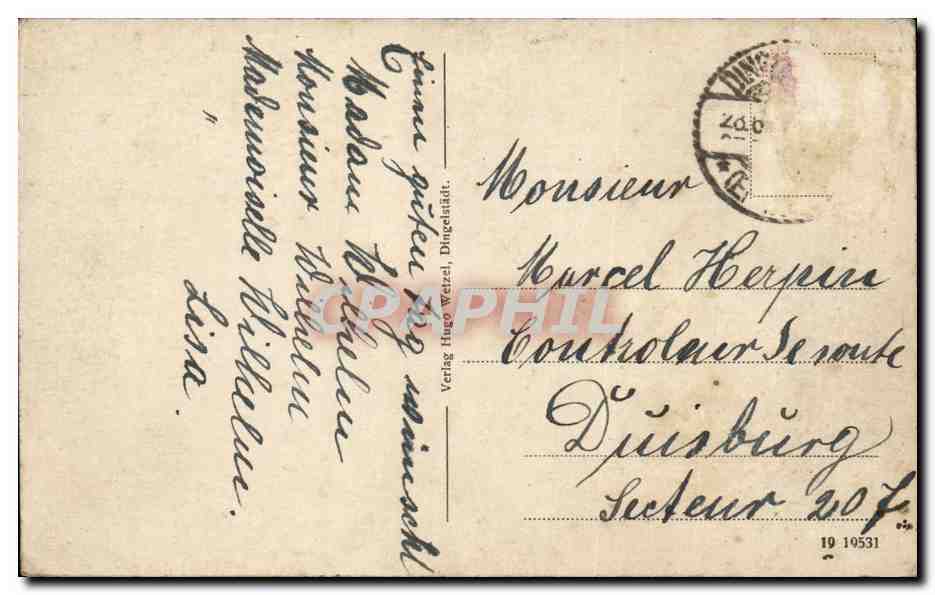 Einen guten Tag wünscht
Madam Wilhelm
Monsieur Wilhelm
Mademoiselle Wilhelm.
" Lisa.
Verlag Hugo Wetzel, Dingelstädt.
DING
Monsieur
Marcel Herpin
Controleur de route
Duisburg
Secteur 207
19 19531
CPAPHIL